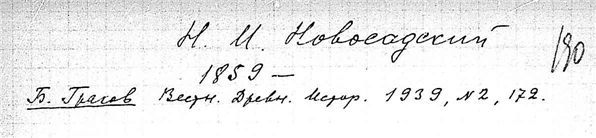 Н. И. Новосадский
190
1859 —
Б. Граков Вестн. Древн. Истор. 1939, N2, 172.